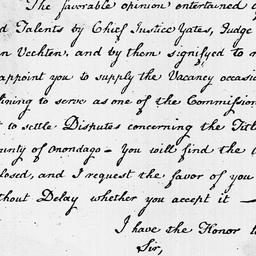 The favorable opinion entertained
d Talents by Chief Justice Yates, Judge
n Vechten, and by them signifyed to
appoint you to supply the Vacancy occasi
lining to serve as one of the Commission
t to settle Disputes concerning the Titl
ounty of Onondago – You will find the
losed, and I request the favor of you
thout Delay whether you accept it –
I have the Honor to
Sir,